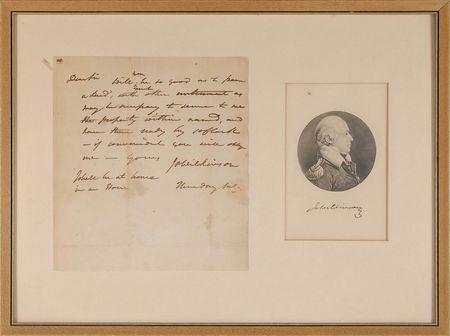 Dear Sir Will you be so good as to pen
a deed, with such other instrument as
may be necessary to secure to me
the property within named, and
have them ready by
— if convenient you will oblige
me — yours
JaWilkinson
I shall be at home
in an Hour
Thursday